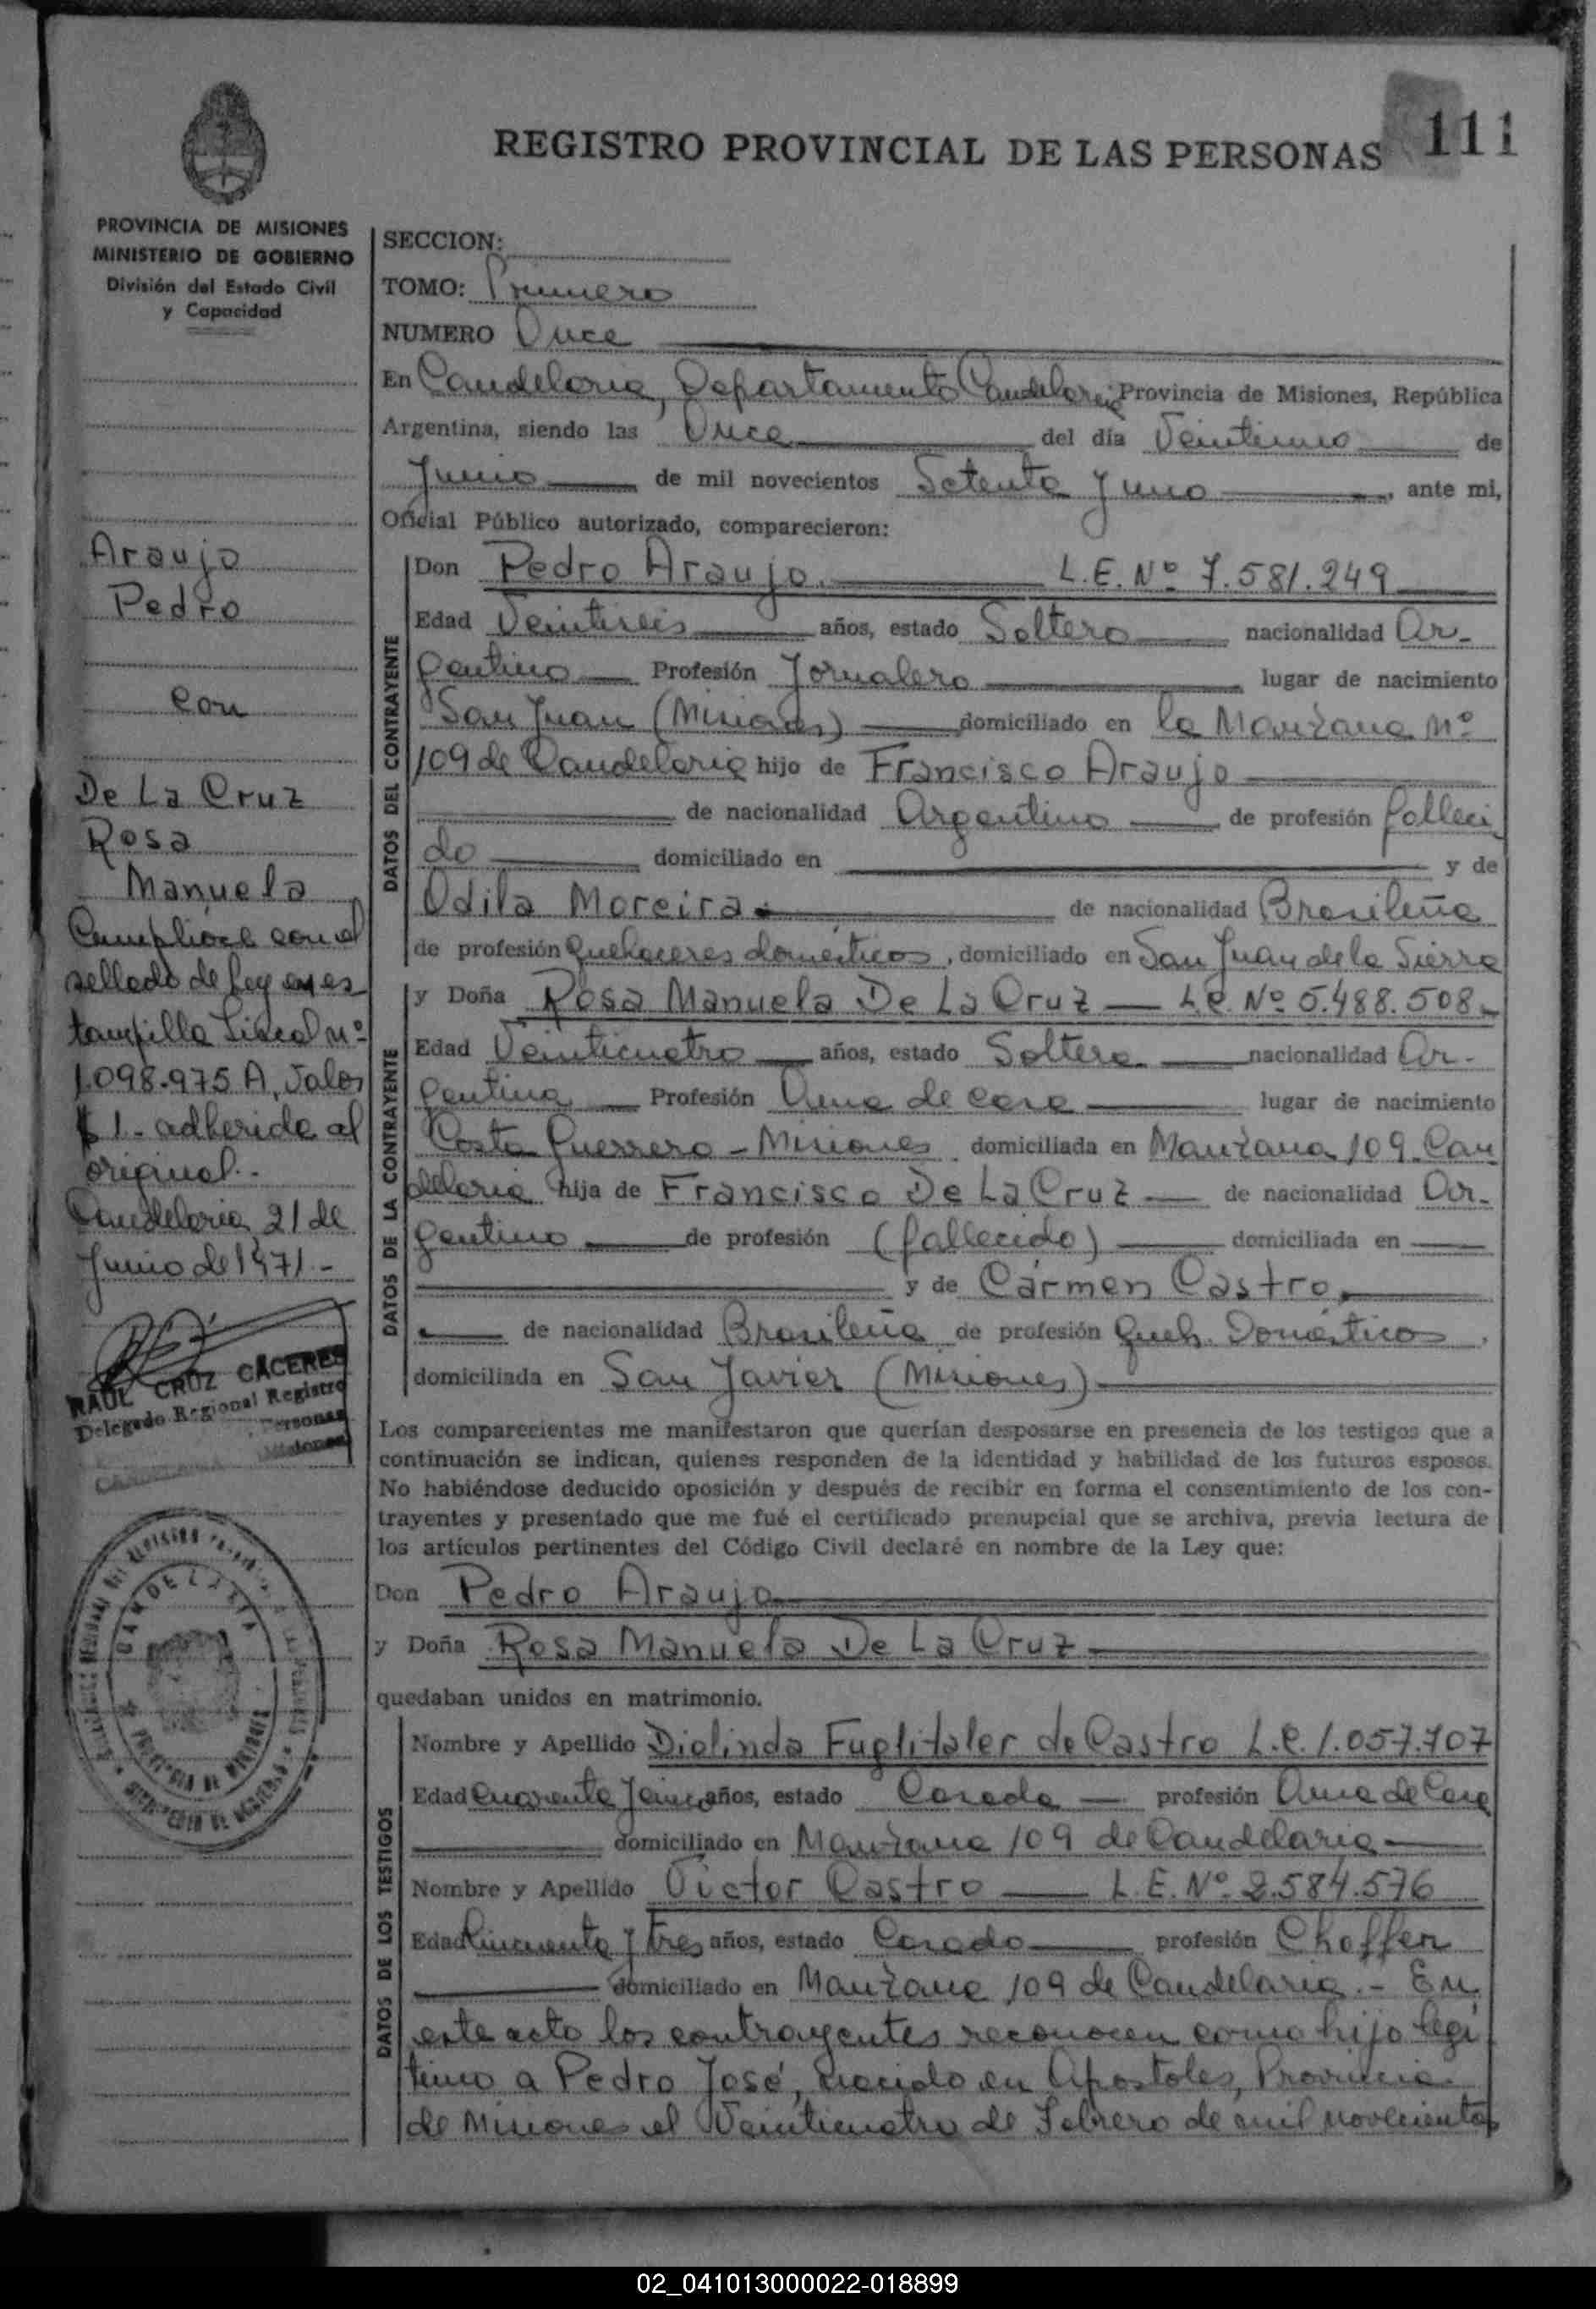 REGISTRO PROVINCIAL DE LAS PERSONAS 111
PROVINCIA DE MISIONES
MINISTERIO DE GOBIERNO
División del Estado Civil
y Capacidad
Araujo
Pedro
con
De La Cruz
Rosa
Manuela
Cumpliose con el
sellado de ley en es
tampilla Fiscal Nº
1.098.975 A, Valor
$ 1.- adherida al
original.-
Candelaria, 21 de
Junio de 1971.-
RAUL CRUZ CACERES
Delegado Regional Registro
Personas
Misiones
CANDELARIA
PROVINCIA DE MISIONES
SECCION:
TOMO: Primero
NUMERO Once
En Candelaria, Departamento Candelaria Provincia de Misiones, República
Argentina, siendo las Once del día Veintiuno de
Junio de mil novecientos Setenta y uno, ante mi,
Oficial Público autorizado, comparecieron:
DATOS DEL CONTRAYENTE
Don Pedro Araujo. L.E. Nº 7.581.249
Edad Veintiseis años, estado Soltero nacionalidad Ar-
gentino Profesión Jornalero lugar de nacimiento
San Juan (Misiones) domiciliado en la Manzana Nº
109 de Candelaria hijo de Francisco Araujo
de nacionalidad Argentino de profesión falleci
do domiciliado en y de
Odila Moreira. de nacionalidad Brasileña
de profesión Quehaceres domésticos, domiciliado en San Juan de la Sierra
DATOS DE LA CONTRAYENTE
y Doña Rosa Manuela De La Cruz L.C. Nº 5.488.508-
Edad Veinticuatro años, estado Soltera nacionalidad Ar-
gentina Profesión Ama de casa lugar de nacimiento
Costa Guerrero - Misiones domiciliada en Manzana 109. Can
delaria hija de Francisco De La Cruz de nacionalidad Ar-
gentino de profesión (fallecido) domiciliada en
y de Cármen Castro,
de nacionalidad Brasileña de profesión Queh. Domésticos,
domiciliada en San Javier (Misiones)
Los comparecientes me manifestaron que querían desposarse en presencia de los testigos que a
continuación se indican, quienes responden de la identidad y habilidad de los futuros esposos.
No habiéndose deducido oposición y después de recibir en forma el consentimiento de los con-
trayentes y presentado que me fué el certificado prenupcial que se archiva, previa lectura de
los artículos pertinentes del Código Civil declaré en nombre de la Ley que:
Don Pedro Araujo
y Doña Rosa Manuela De La Cruz
quedaban unidos en matrimonio.
DATOS DE LOS TESTIGOS
Nombre y Apellido Diolinda Fuglitaler de Castro L.C. 1.057.707
Edad Cuarenta y cinco años, estado Casada profesión Ama de Casa
domiciliado en Manzana 109 de Candelaria
Nombre y Apellido Victor Castro L.E. Nº 2.584.576
Edad Cincuenta y tres años, estado Casado profesión Choffer
domiciliado en Manzana 109 de Candelaria.- En
este acto los contrayentes reconocen como hijo legi
timo a Pedro José, nacido en Apostoles, Provincia
de Misiones el Veinticuatro de Febrero de mil novecientos
02_041013000022-018899